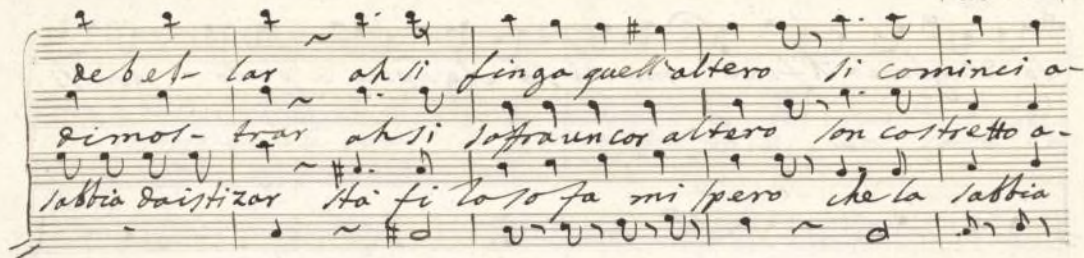 debel- lar ah si finga quell'altero si cominci a-
dimos- trar ah si soffra un cor altero son costretto a-
sabbia da istizar sta filosofa mi spero che la sabbia